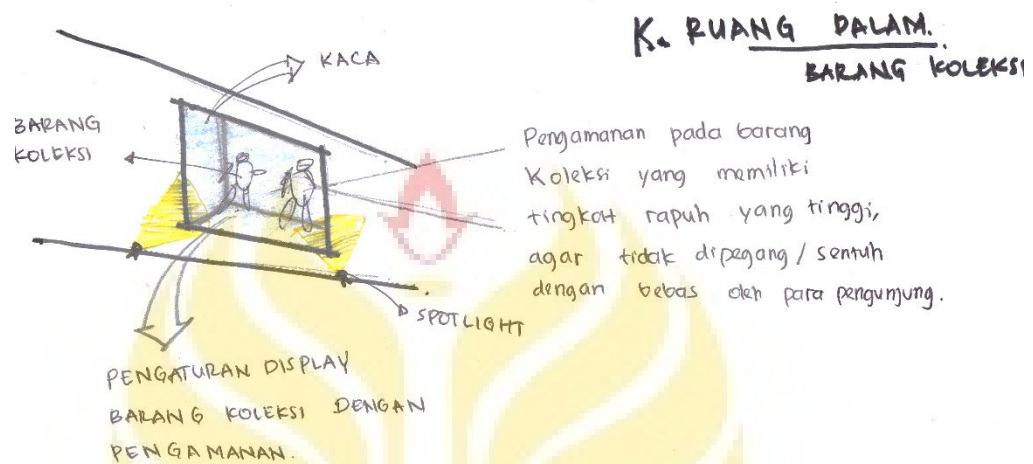 K. RUANG DALAM.
BARANG KOLEKSI
KACA
BARANG
KOLEKSI
Pengamanan pada barang
Koleksi yang memiliki
tingkat rapuh yang tinggi,
agar tidak dipegang / sentuh
dengan bebas oleh para pengunjung.
SPOTLIGHT
PENGATURAN DISPLAY
BARANG KOLEKSI DENGAN
PENGAMANAN.